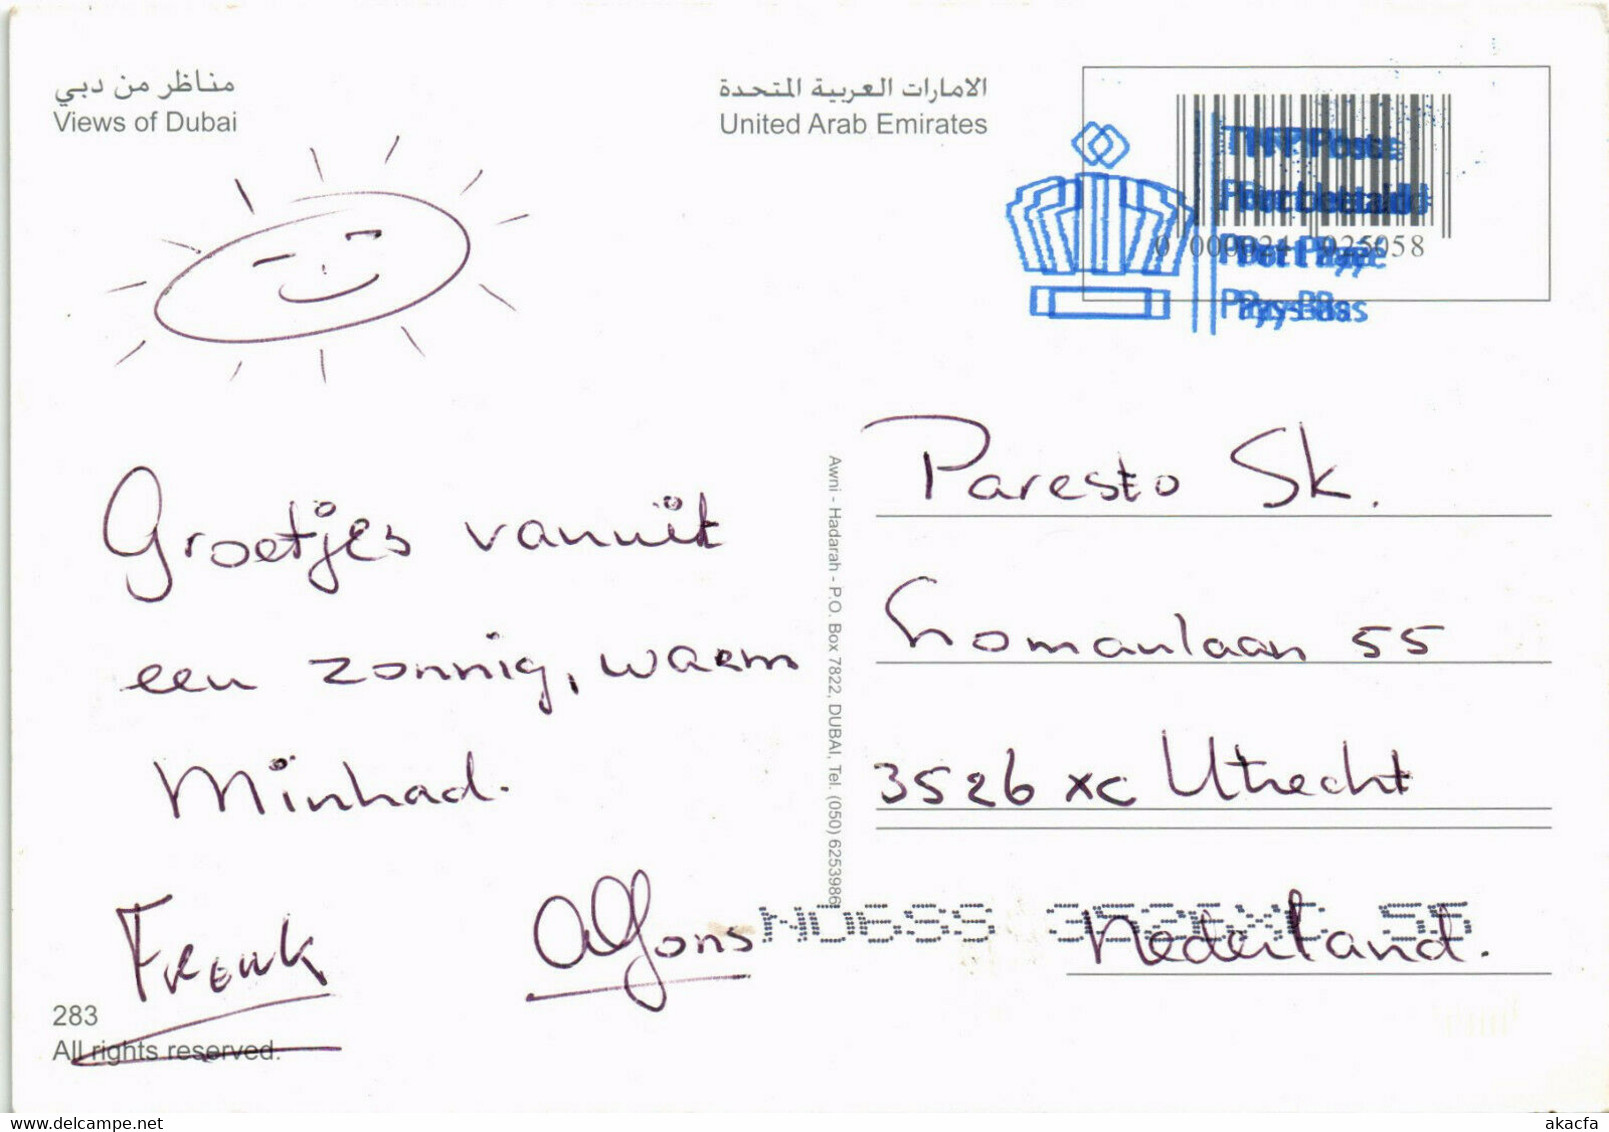 مناظر من دبي
Views of Dubai
الامارات العربية المتحدة
United Arab Emirates
TNT Post
Port betaald
Port Payé
Pays-Bas
0 000024 025058
Groetjes vanuit
een zonnig, warm
Minhad.
Frenk Alfons
283
All rights reserved.
Awni - Hadarah - P.O. Box 7822, DUBAI, Tel. (050) 6253986
Paresto Sk.
Lomanlaan 55
3526 XC Utrecht
Nederland.
3526XC 55
www.delcampe.net
akacfa